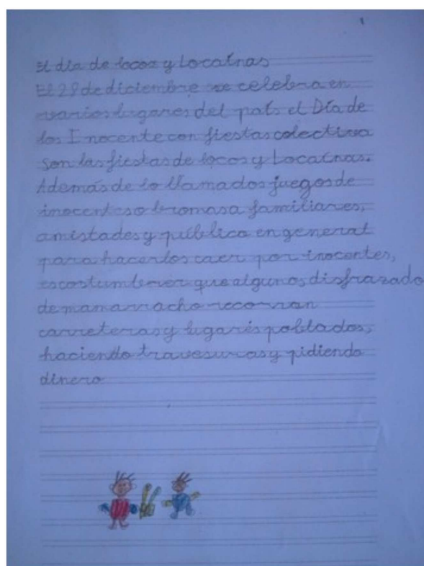 1
El día de locos y Locaínas
El 28 de diciembre se celebra en
varios lugares del país el Día de
los Inocente con fiestas colectiva
son las fiestas de locos y Locaínas.
Además de lo llamados juegos de
inocentes o bromas a familiares,
amistades y público en general
para hacerlos caer por inocentes,
es costumbre que algunos, disfrazado
de mamarracho recorran
carreteras y lugares poblados,
haciendo travesuras y pidiendo
dinero